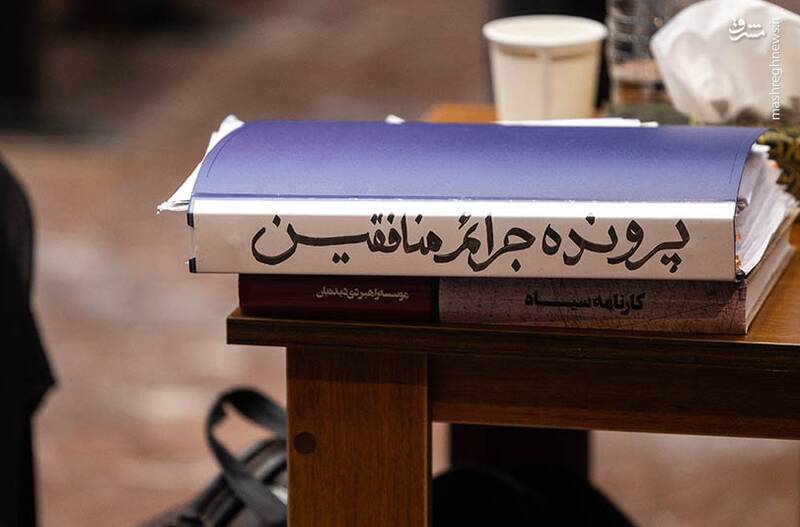 مشرق
mashreghnews.ir
پرونده جرائم منافقین
کارنامه سیاه
موسسه راهبردی دیده‌بان